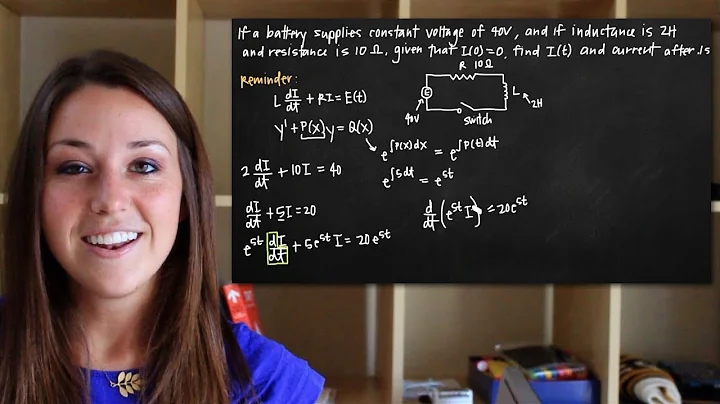 If a battery supplies constant voltage of 40V, and if inductance is 2H
and resistance is 10 Ω, given that I(0)=0, find I(t) and current after .1s
Reminder:
L dI/dt + RI = E(t)
y' + P(x)y = Q(x)
R 10Ω
E
40V
L
2H
switch
e^∫P(x)dx = e^∫P(t)dt
e^∫5dt = e^5t
2 dI/dt + 10I = 40
dI/dt + 5I = 20
e^5t dI/dt + 5e^5t I = 20e^5t
d/dt (e^5t I) = 20e^5t